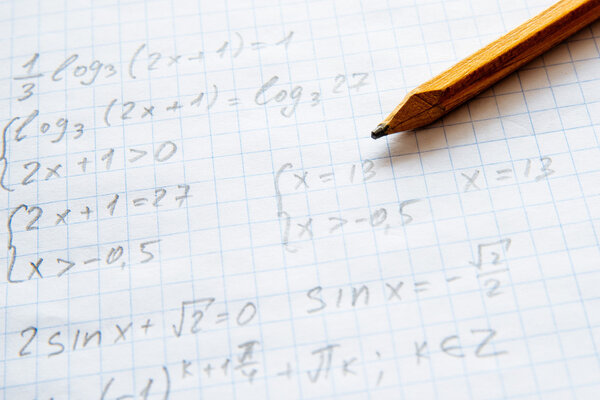 1/3 log₃(2x+1)=1
{log₃(2x+1)=log₃27
{2x+1>0
{2x+1=27
{x>-0,5
{x=13
{x>-0,5
x=13
2sinx+√2=0
sinx=-√2/2
(-1)^(k+1) π/4 + πk; k∈Z